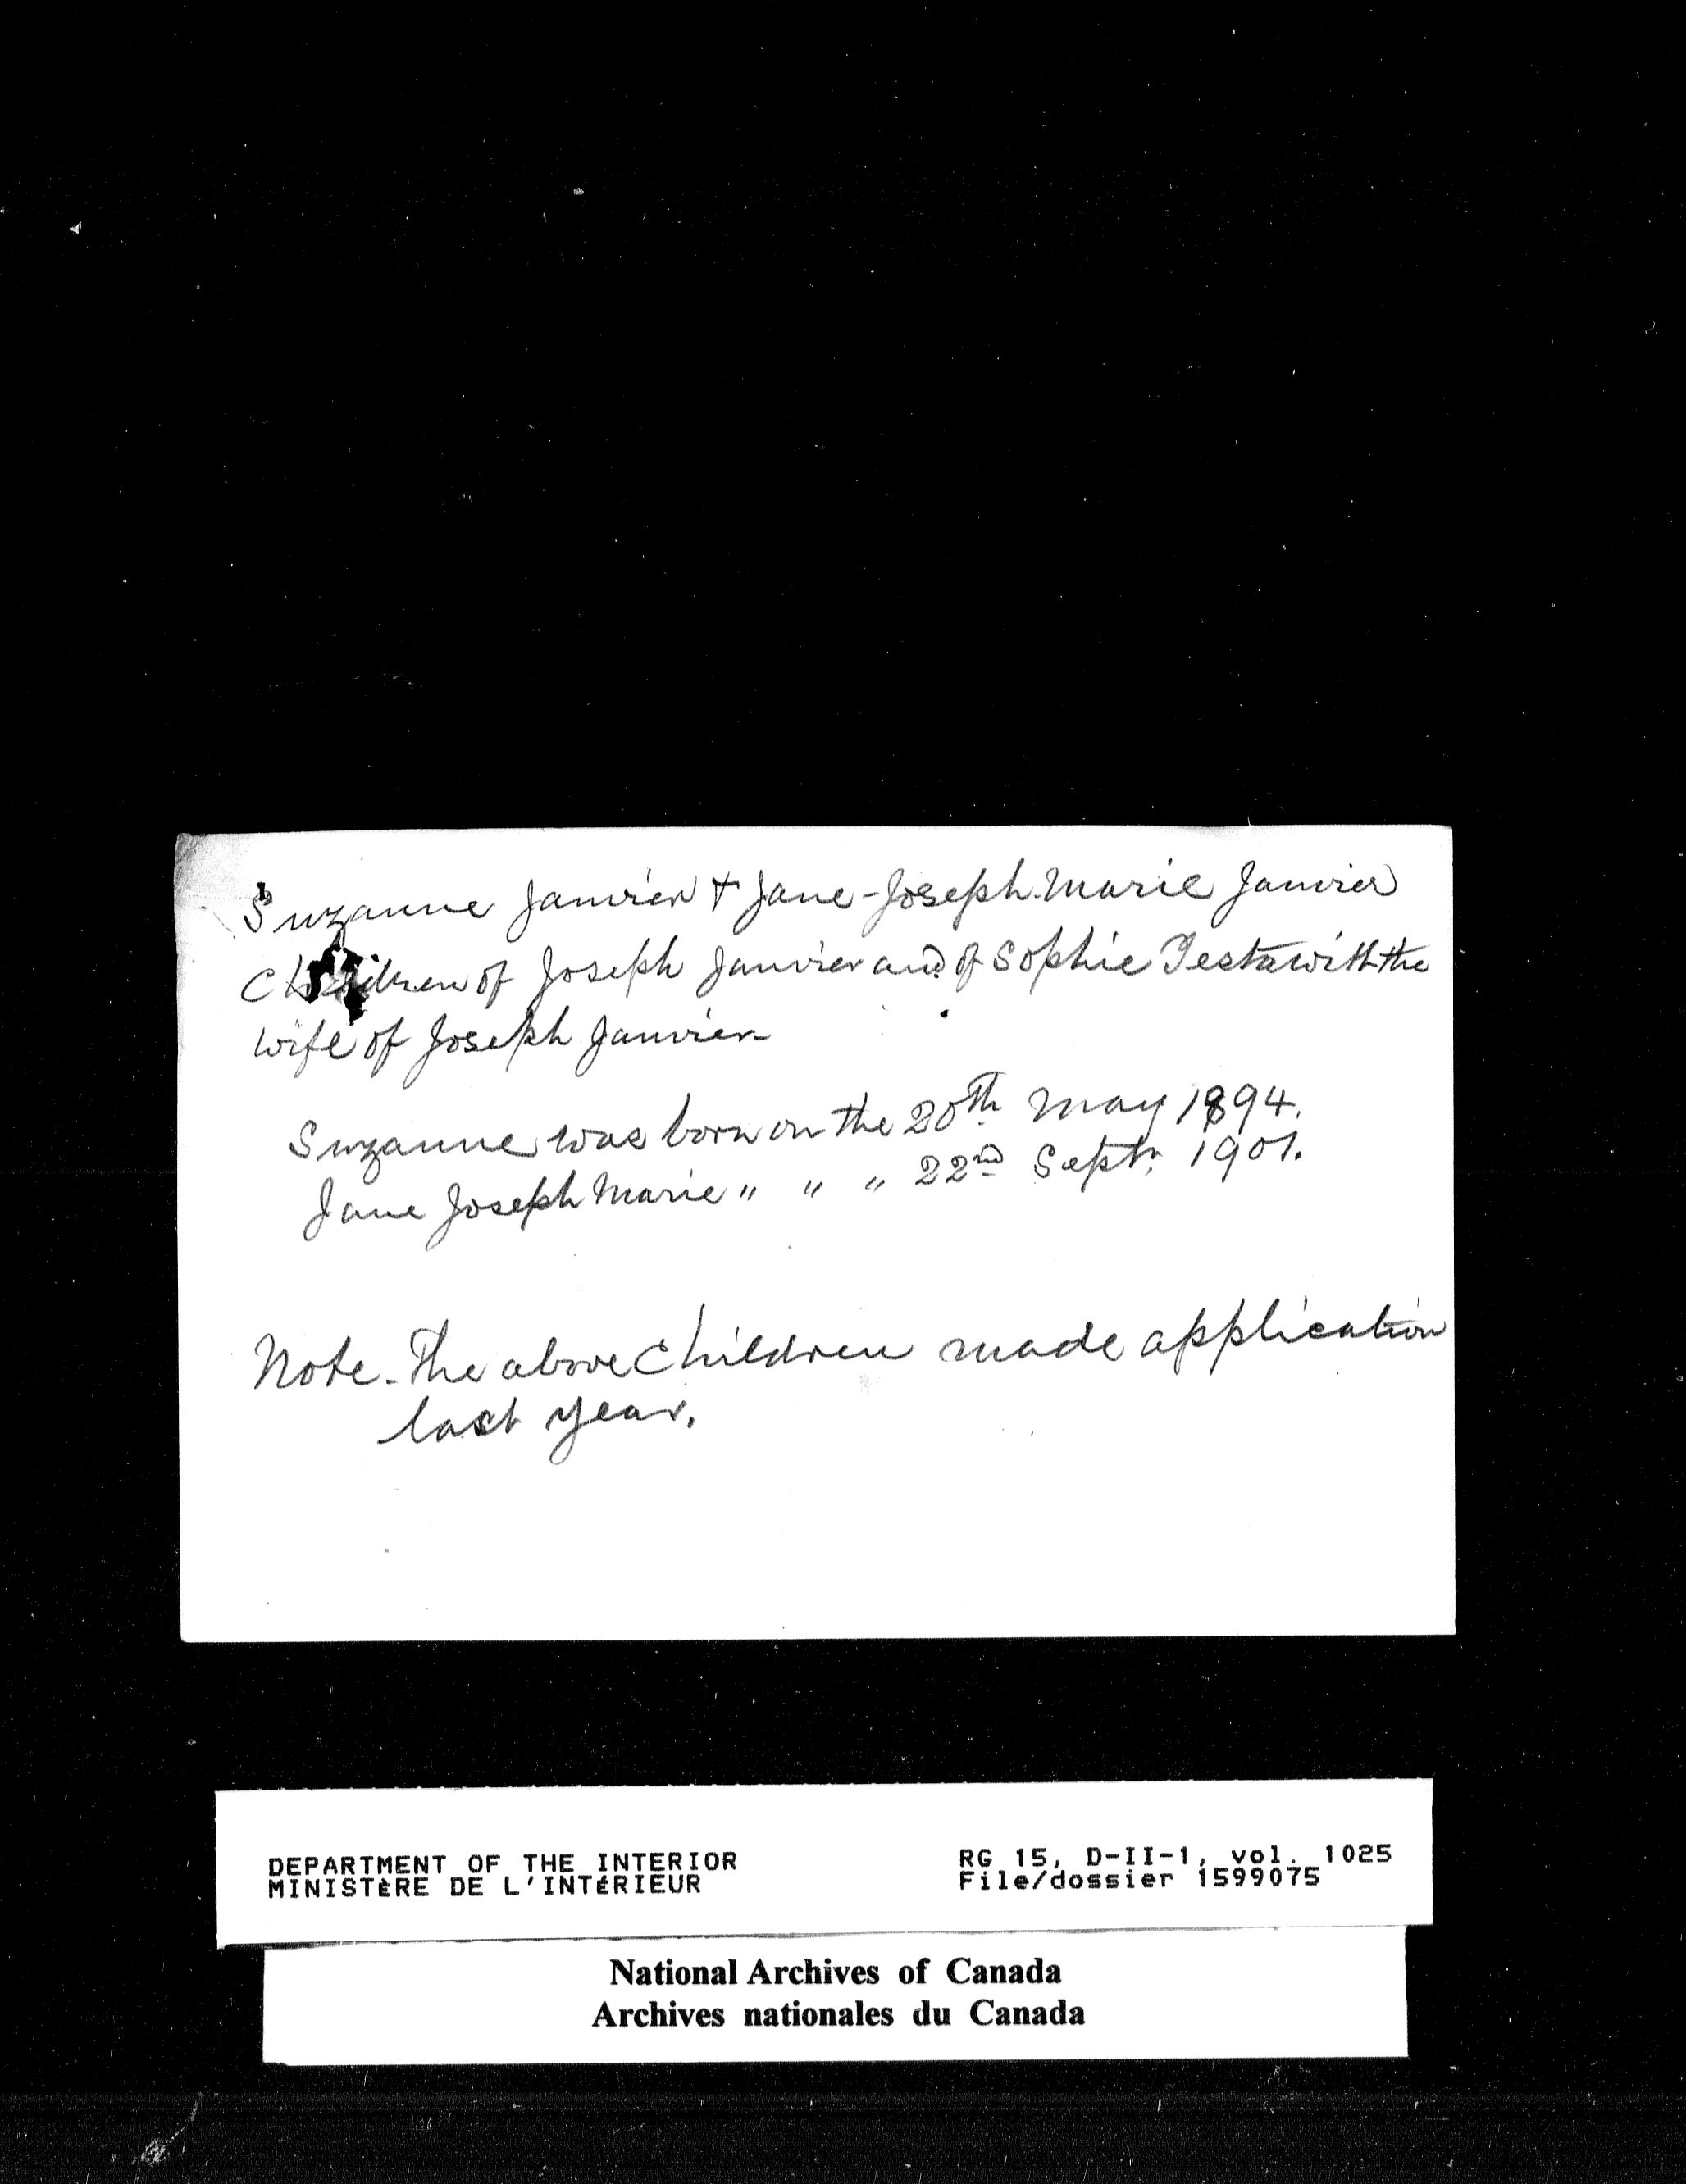 Suzanne Janvier + Jane-Joseph-Marie Janvier
Children of Joseph Janvier and of Sophie Testawitsthe
wife of Joseph Janvier-
Suzanne was born on the 20th May 1894.
Jane Joseph Marie " " " 22nd Septr. 1901.
Note - The above Children made application
last year.
DEPARTMENT OF THE INTERIOR
MINISTÈRE DE L'INTÉRIEUR
RG 15, D-II-1, vol. 1025
File/dossier 1599075
National Archives of Canada
Archives nationales du Canada